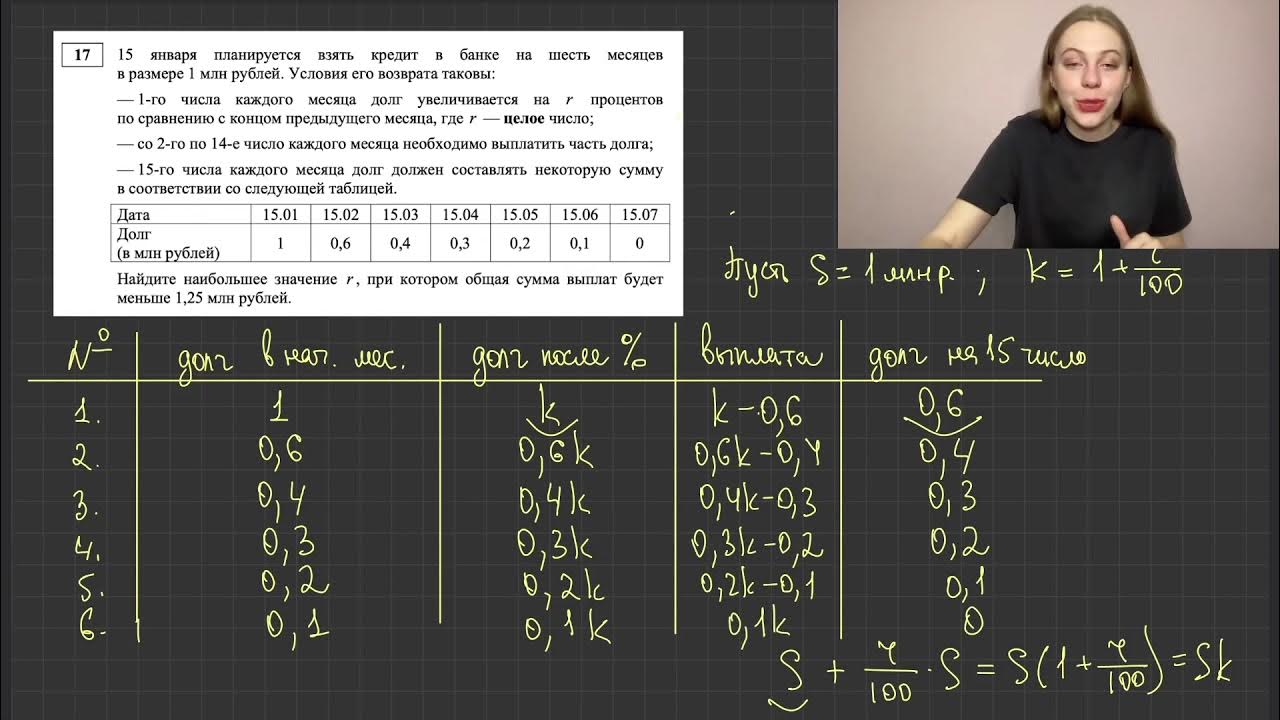 17
15 января планируется взять кредит в банке на шесть месяцев
в размере 1 млн рублей. Условия его возврата таковы:
— 1-го числа каждого месяца долг увеличивается на r процентов
по сравнению с концом предыдущего месяца, где r — целое число;
— со 2-го по 14-е число каждого месяца необходимо выплатить часть долга;
— 15-го числа каждого месяца долг должен составлять некоторую сумму
в соответствии со следующей таблицей.
Дата 15.01 15.02 15.03 15.04 15.05 15.06 15.07
Долг
(в млн рублей) 1 0,6 0,4 0,3 0,2 0,1 0
Найдите наибольшее значение r, при котором общая сумма выплат будет
меньше 1,25 млн рублей.
Пусть S = 1 млн р. ; k = 1 + r/100
№ долг в нач. мес. долг после % выплата долг на 15 число
1. 1 k k - 0,6 0,6
2. 0,6 0,6k 0,6k - 0,4 0,4
3. 0,4 0,4k 0,4k - 0,3 0,3
4. 0,3 0,3k 0,3k - 0,2 0,2
5. 0,2 0,2k 0,2k - 0,1 0,1
6. 0,1 0,1k 0,1k 0
S + r/100 · S = S(1 + r/100) = Sk